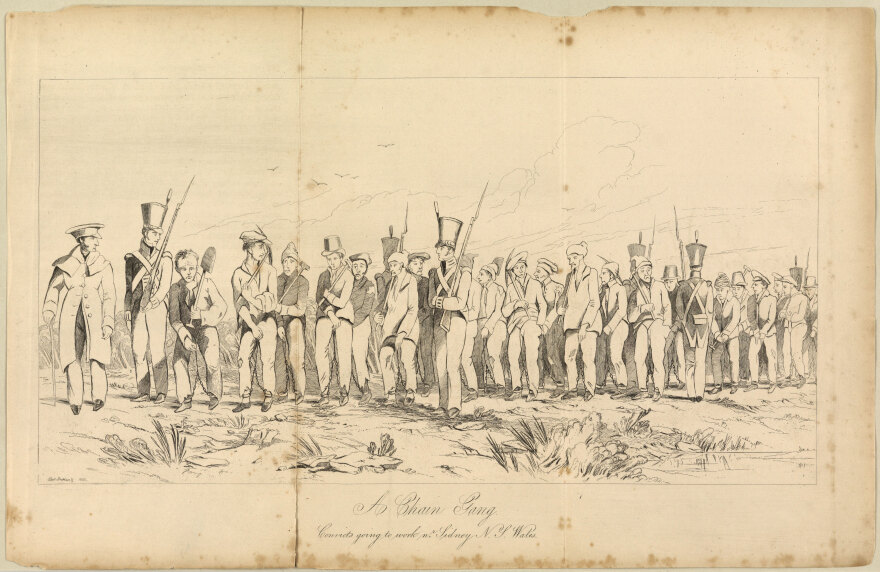 A Chain Gang
Convicts going to work nr. Sidney N. S. Wales.